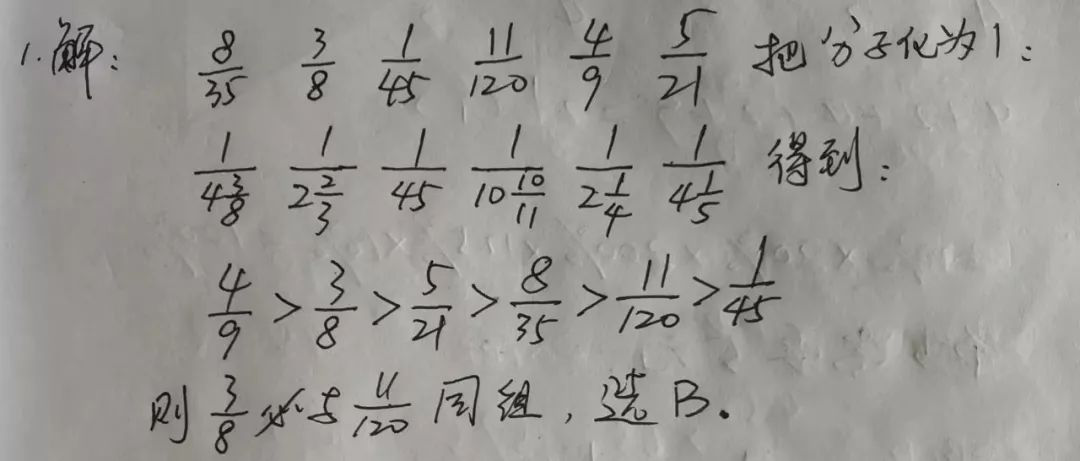 1.解: 8/35 3/8 1/45 11/120 4/9 5/21 把分子化为1:
1/4 3/8 1/2 2/3 1/45 1/10 10/11 1/2 1/4 1/4 1/5 得到:
4/9 > 3/8 > 5/21 > 8/35 > 11/120 > 1/45
则 3/8 与 11/120 同组,选B.